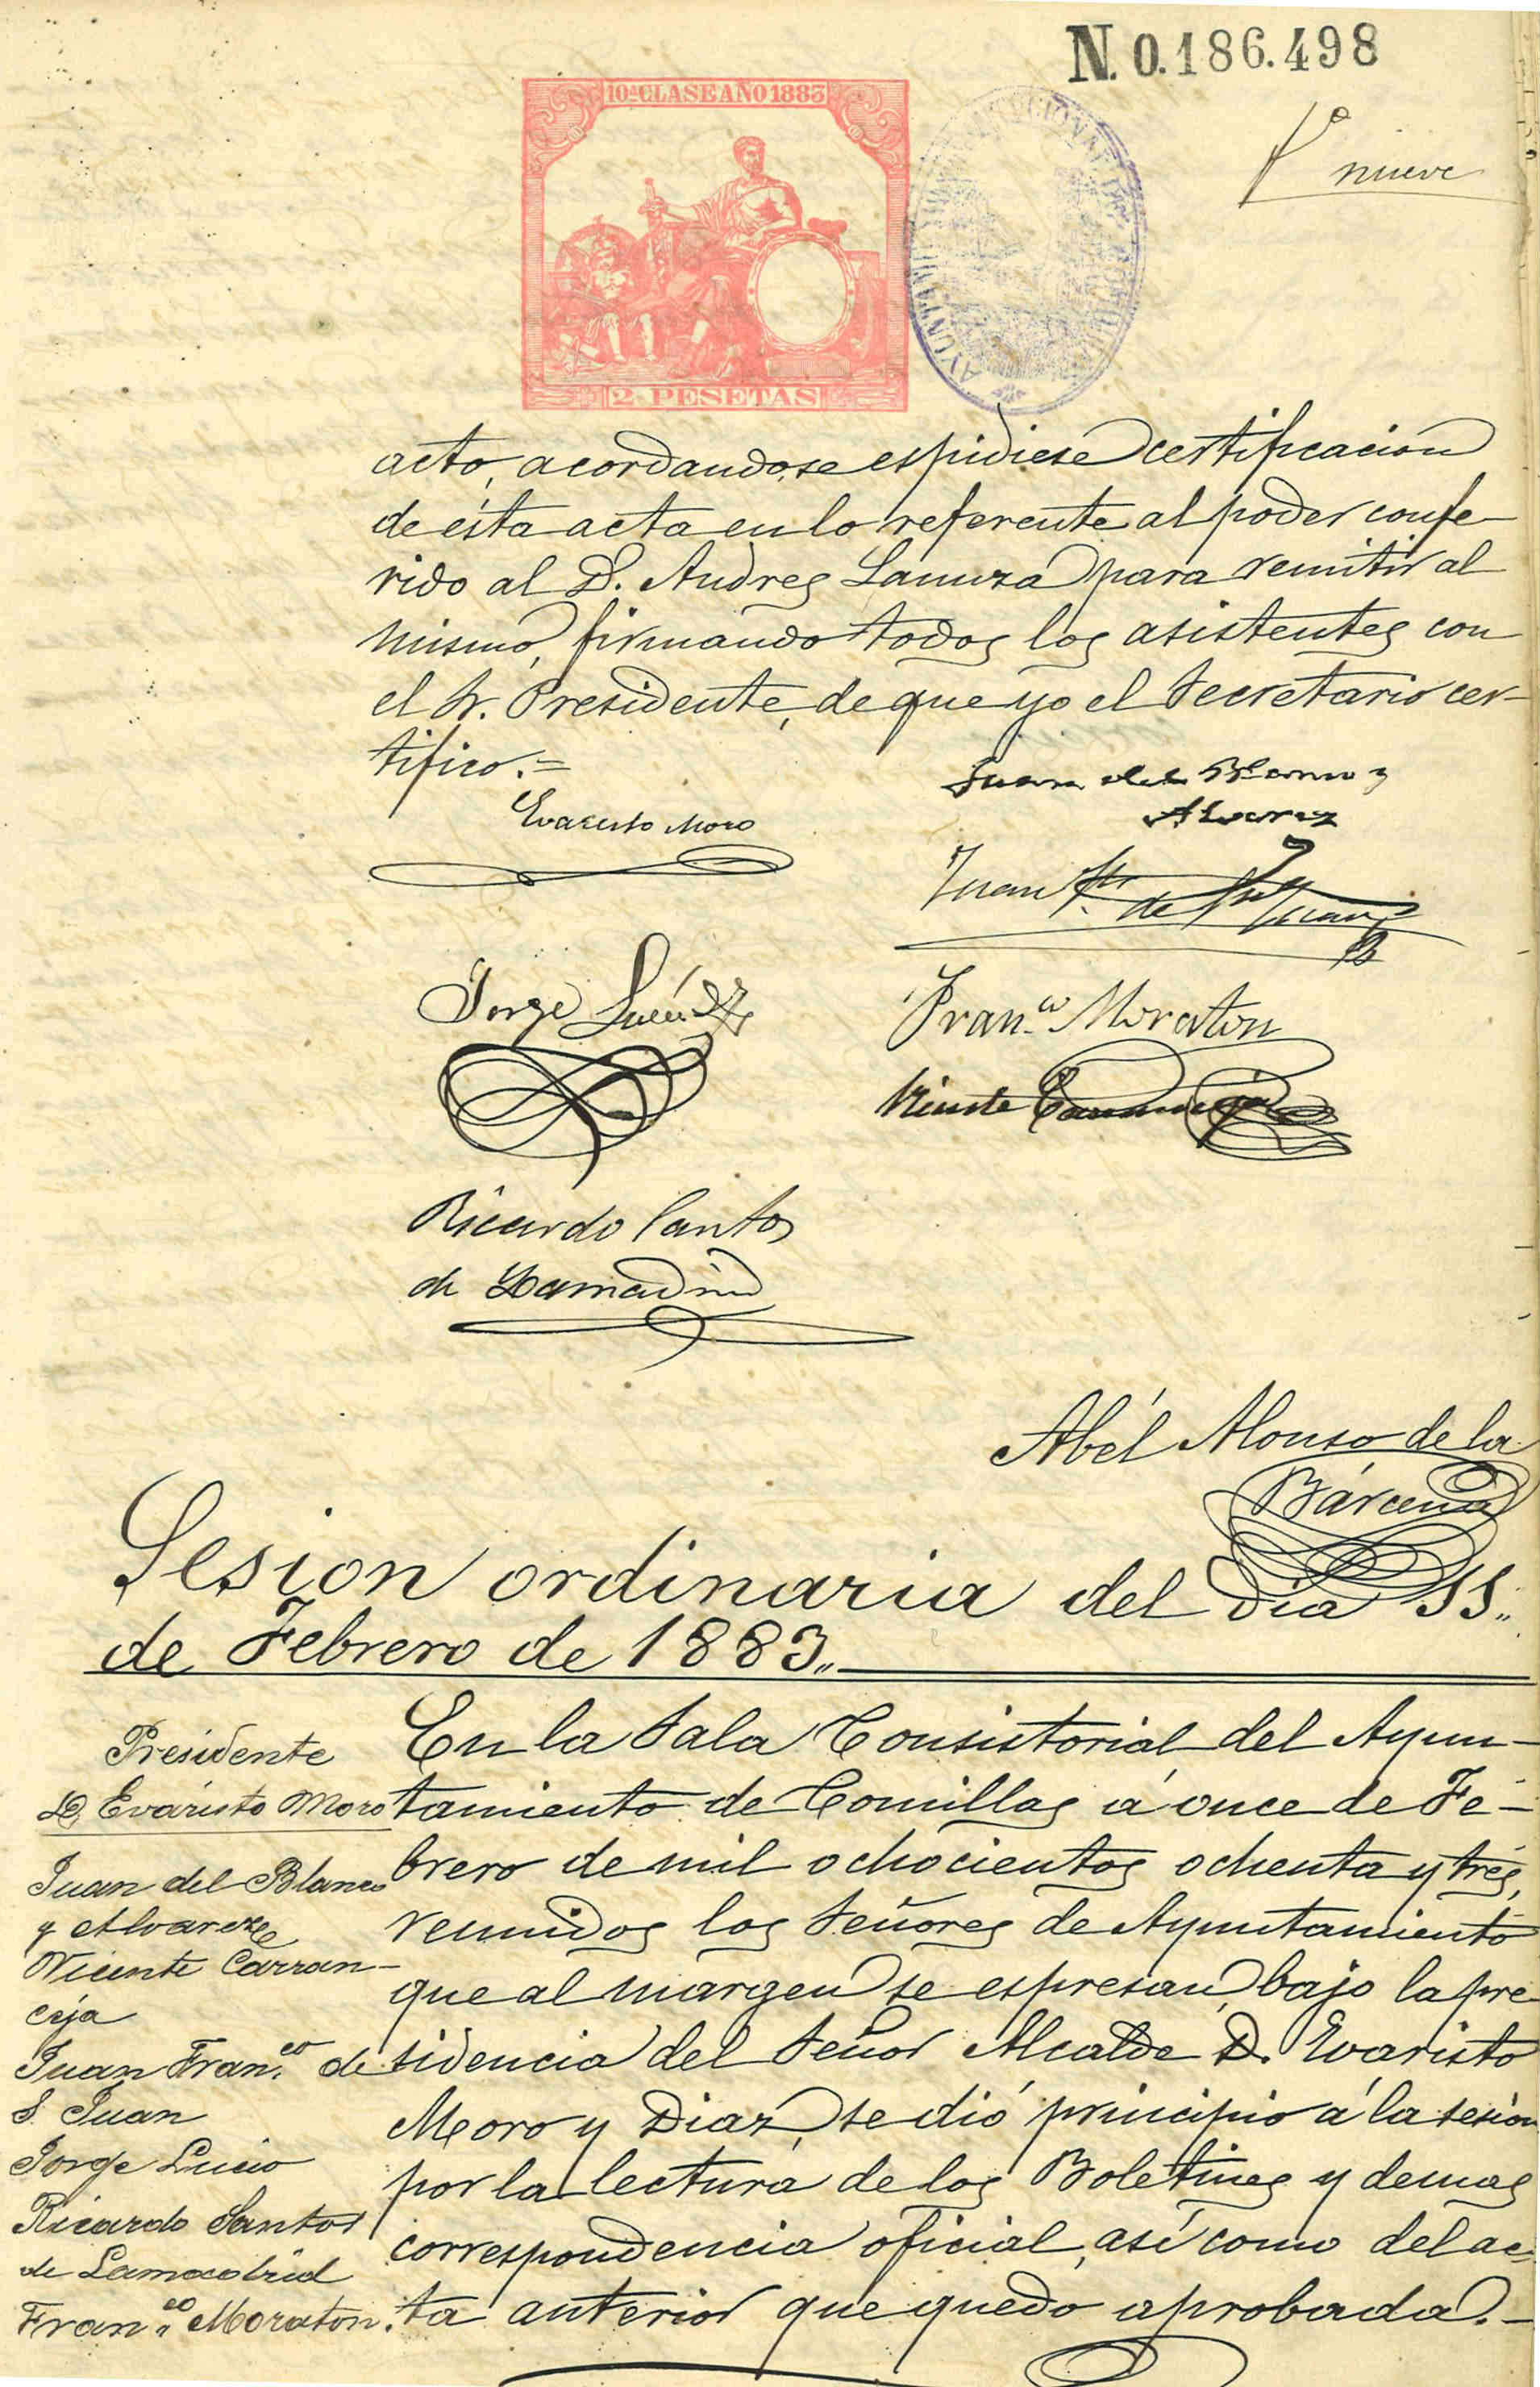 N. 0.186.498
10ª CLASE AÑO 1883
2 PESETAS
AYUNTAMIENTO CONSTITUCIONAL DE
Fº nueve
acto, acordandose espidiese certificacion
de ésta acta en lo referente al poder confe-
rido al D. Andres Lanuza para remitir al
mismo, firmando todos los asistentes con
el Sr. Presidente, de que yo el Secretario cer-
tifico.=
Evaristo Moro
Juan del Blanco y
Alvarez
Juan Fco. de Sn Juan
Jorge Lucio
Fran.co Moraton
Vicente Carranceja
Ricardo Santos
de Lamadrid
Abél Alonso de la
Bárcena
Sesion ordinaria del dia 11.,
de Febrero de 1883.,
Presidente
D. Evaristo Moro
Juan del Blanco
y Alvarez
Vicente Carran-
ceja
Juan Fran.co de
S. Juan
Jorge Lucio
Ricardo Santos
de Lamadrid
Fran.co Moraton.
En la Sala Consistorial del Ayun-
tamiento de Comillas á once de Fe-
brero de mil ochocientos ochenta y tres,
reunidos los Señores de Ayuntamiento
que al margen se espresan, bajo la pre
sidencia del Señor Alcalde D. Evaristo
Moro y Diaz, se dió principio á la sesion
por la lectura de los Boletines y demas
correspondencia oficial, así como del ac-
ta anterior que quedo aprobada.-